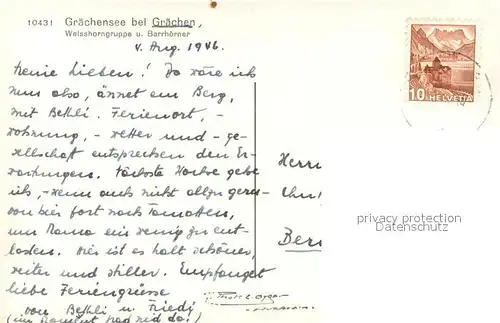 10431 Grächensee bei Grächen,
Weisshorngruppe u. Barrhörner
v. Aug. 1946.
10
HELVETIA
Meine Lieben! Da wäre ich
nun also, ännet em Berg,
mit Bethli. Ferienort, -
wohnung, - wetter und - ge-
sellschaft entsprechen den Er-
wartungen. Nächste Woche gehe
ich, - wenn auch nicht allzu gern -
von hier fort nach
um Mama ein wenig zu ent-
lasten. Hier ist es halt schöner,
weiter und stiller. Empfanget
liebe Feriengrüsse
von Bethli u. Friedi
Herrn
Bern
privacy protection
Datenschutz